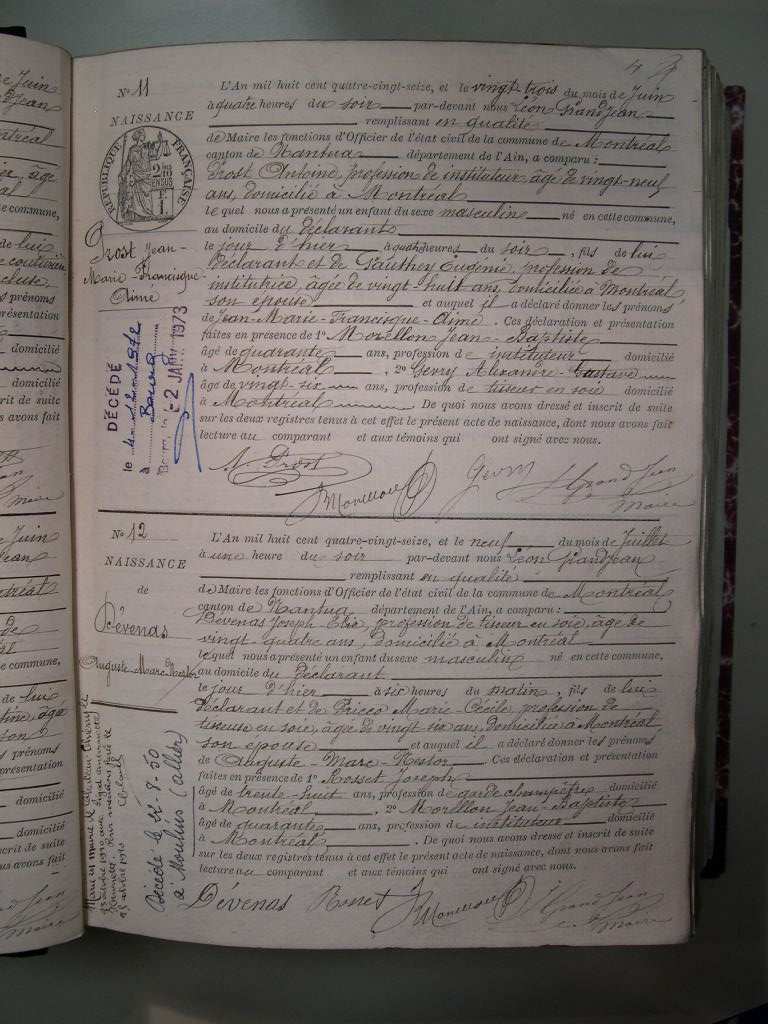 4
Nº 11
NAISSANCE
RÉPUBLIQUE FRANÇAISE
Prost Jean-
Marie-Francisque-
Aimé
DÉCÉDÉ
le
à Bourg
2 JANV 1973
L'An mil huit cent quatre-vingt-seize, et le vingt trois du mois de Juin
à quatre heures du soir par-devant nous Léon Grandjean
remplissant en qualité
de Maire les fonctions d'Officier de l'état civil de la commune de Montréal
canton de Nantua département de l'Ain, a comparu :
Prost Antoine, profession de instituteur, âgé de vingt-neuf
ans, domicilié à Montréal
lequel nous a présenté un enfant du sexe masculin né en cette commune,
au domicile du déclarant
le jour d'hier à quatre heures du soir, fils de lui
déclarant et de Gauthey Eugénie, profession de
institutrice, âgée de vingt huit ans, domiciliée à Montréal
son épouse et auquel il a déclaré donner les prénoms
de Jean-Marie-Francisque-Aimé. Ces déclaration et présentation
faites en présence de 1º Morellon Jean-Baptiste
âgé de quarante ans, profession de instituteur domicilié
à Montréal, 2º Gevry Alexandre Gustave
âgé de vingt six ans, profession de tisseur en soie domicilié
à Montréal De quoi nous avons dressé et inscrit de suite
sur les deux registres tenus à cet effet le présent acte de naissance, dont nous avons fait
lecture au comparant et aux témoins qui ont signé avec nous.
A. Prost
Morellon Gevry L. Grandjean
Maire
Nº 12
NAISSANCE
de
Dévenas
Auguste-Marc-Nestor
Décédé le 22-8-50
à Moulins (allier)
L'An mil huit cent quatre-vingt-seize, et le neuf du mois de Juillet
à une heure du soir par-devant nous Léon Grandjean
remplissant en qualité
de Maire les fonctions d'Officier de l'état civil de la commune de Montréal
canton de Nantua département de l'Ain, a comparu :
Dévenas Joseph Elie, profession de tisseur en soie, âgé de
vingt quatre ans, domicilié à Montréal
lequel nous a présenté un enfant du sexe masculin né en cette commune,
au domicile du déclarant
le jour d'hier à six heures du matin, fils de lui
déclarant et de Marie-Cécile, profession de
tisseuse en soie, âgée de vingt six ans, domiciliée à Montréal
son épouse et auquel il a déclaré donner les prénoms
de Auguste-Marc-Nestor. Ces déclaration et présentation
faites en présence de 1º Rosset Joseph
âgé de trente-huit ans, profession de garde champêtre domicilié
à Montréal, 2º Morellon Jean-Baptiste
âgé de quarante ans, profession de instituteur domicilié
à Montréal. De quoi nous avons dressé et inscrit de suite
sur les deux registres tenus à cet effet le présent acte de naissance, dont nous avons fait
lecture au comparant et aux témoins qui ont signé avec nous.
Dévenas Rosset Morellon L. Grandjean
Maire